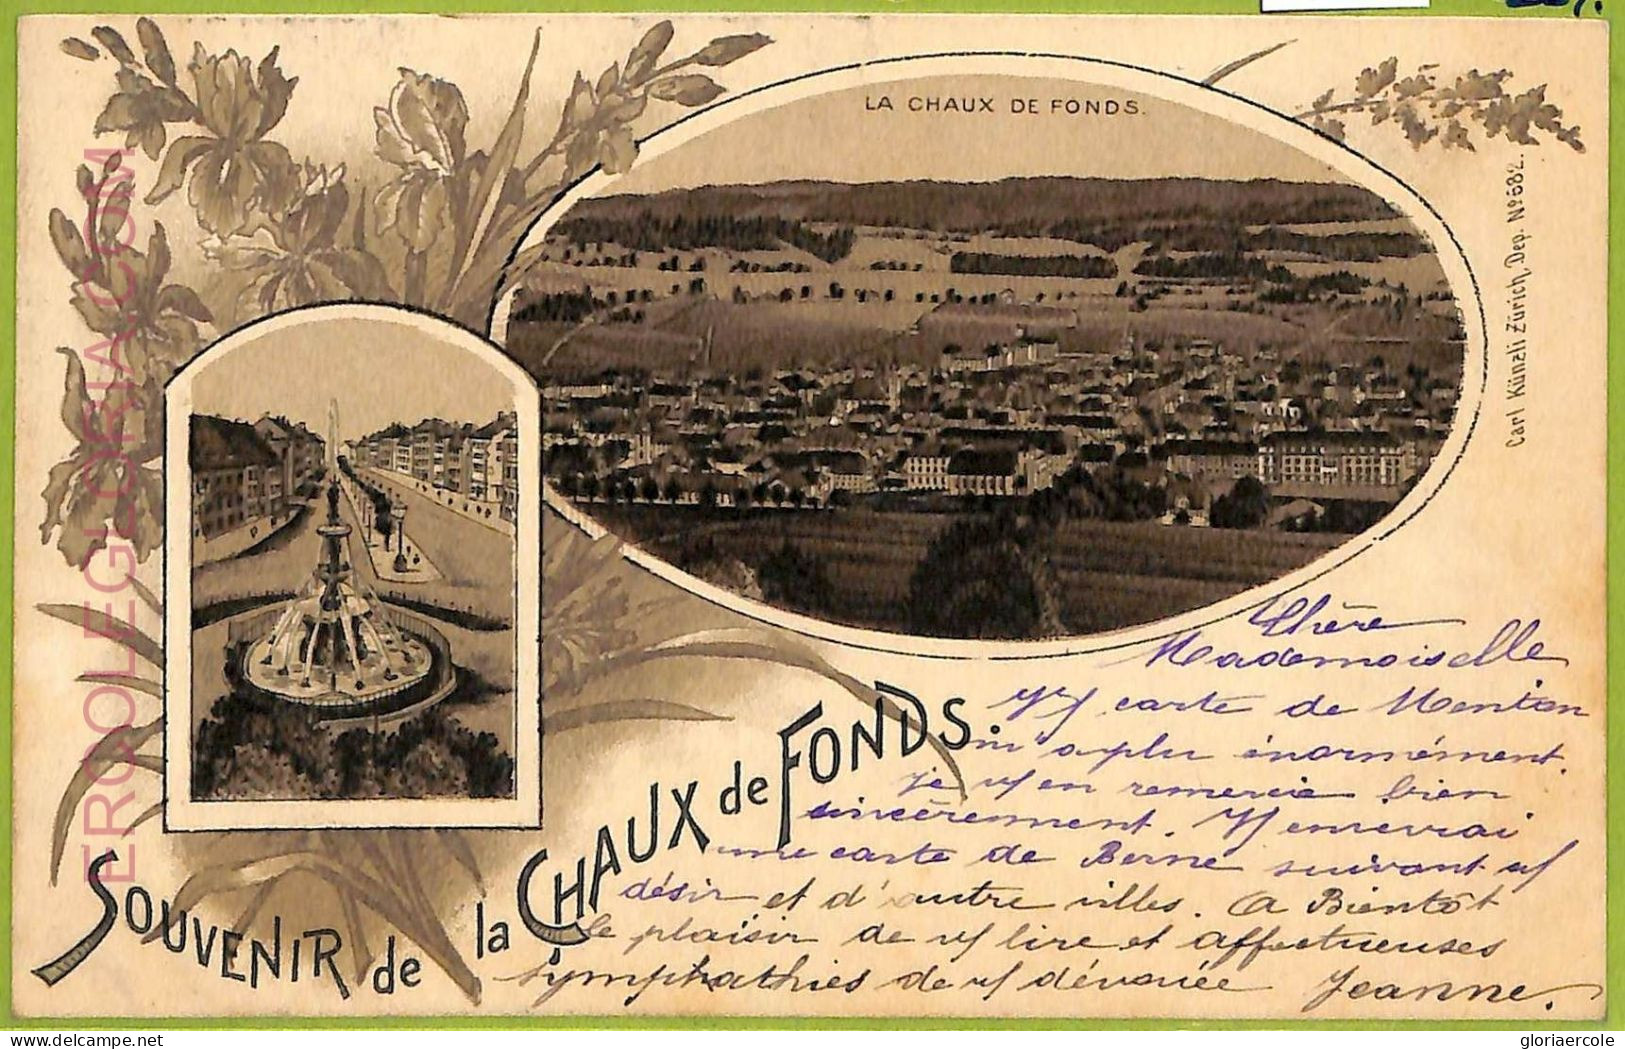 LA CHAUX DE FONDS.
Carl Künzli Zürich, Dep. No 682.
SOUVENIR de la CHAUX de FONDS.
Chère
Mademoiselle
carte de Menton
m'a plu énormément.
Je en remercie bien
sincèrement. enverrai
une carte de Berne suivant
désir et d'autre villes. A Bientôt
le plaisir de lire et affectueuses
symphathies de dévouée Jeanne.
ERCOLEGLORIA.COM
delcampe.net
gloriaercole